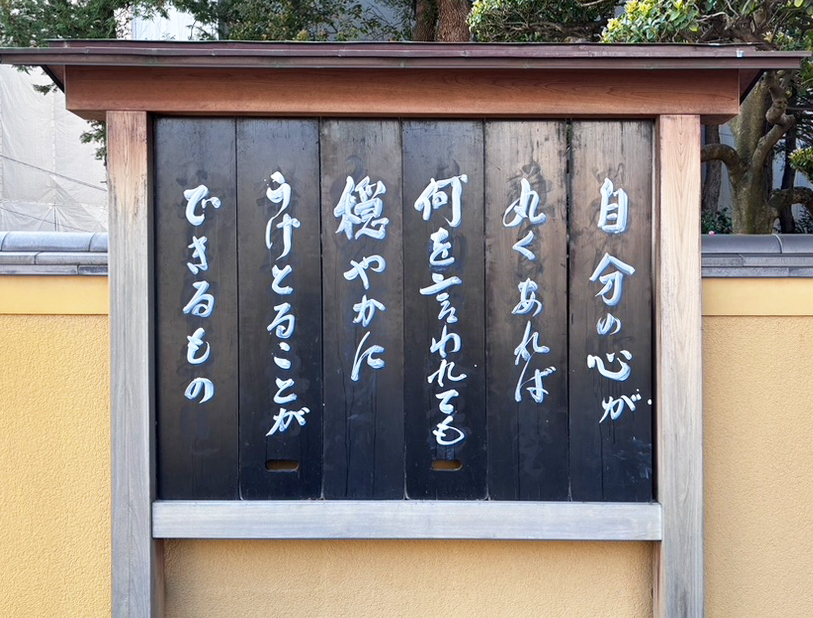 自分の心が
丸くあれば
何を言われても
穏やかに
うけとることが
できるもの